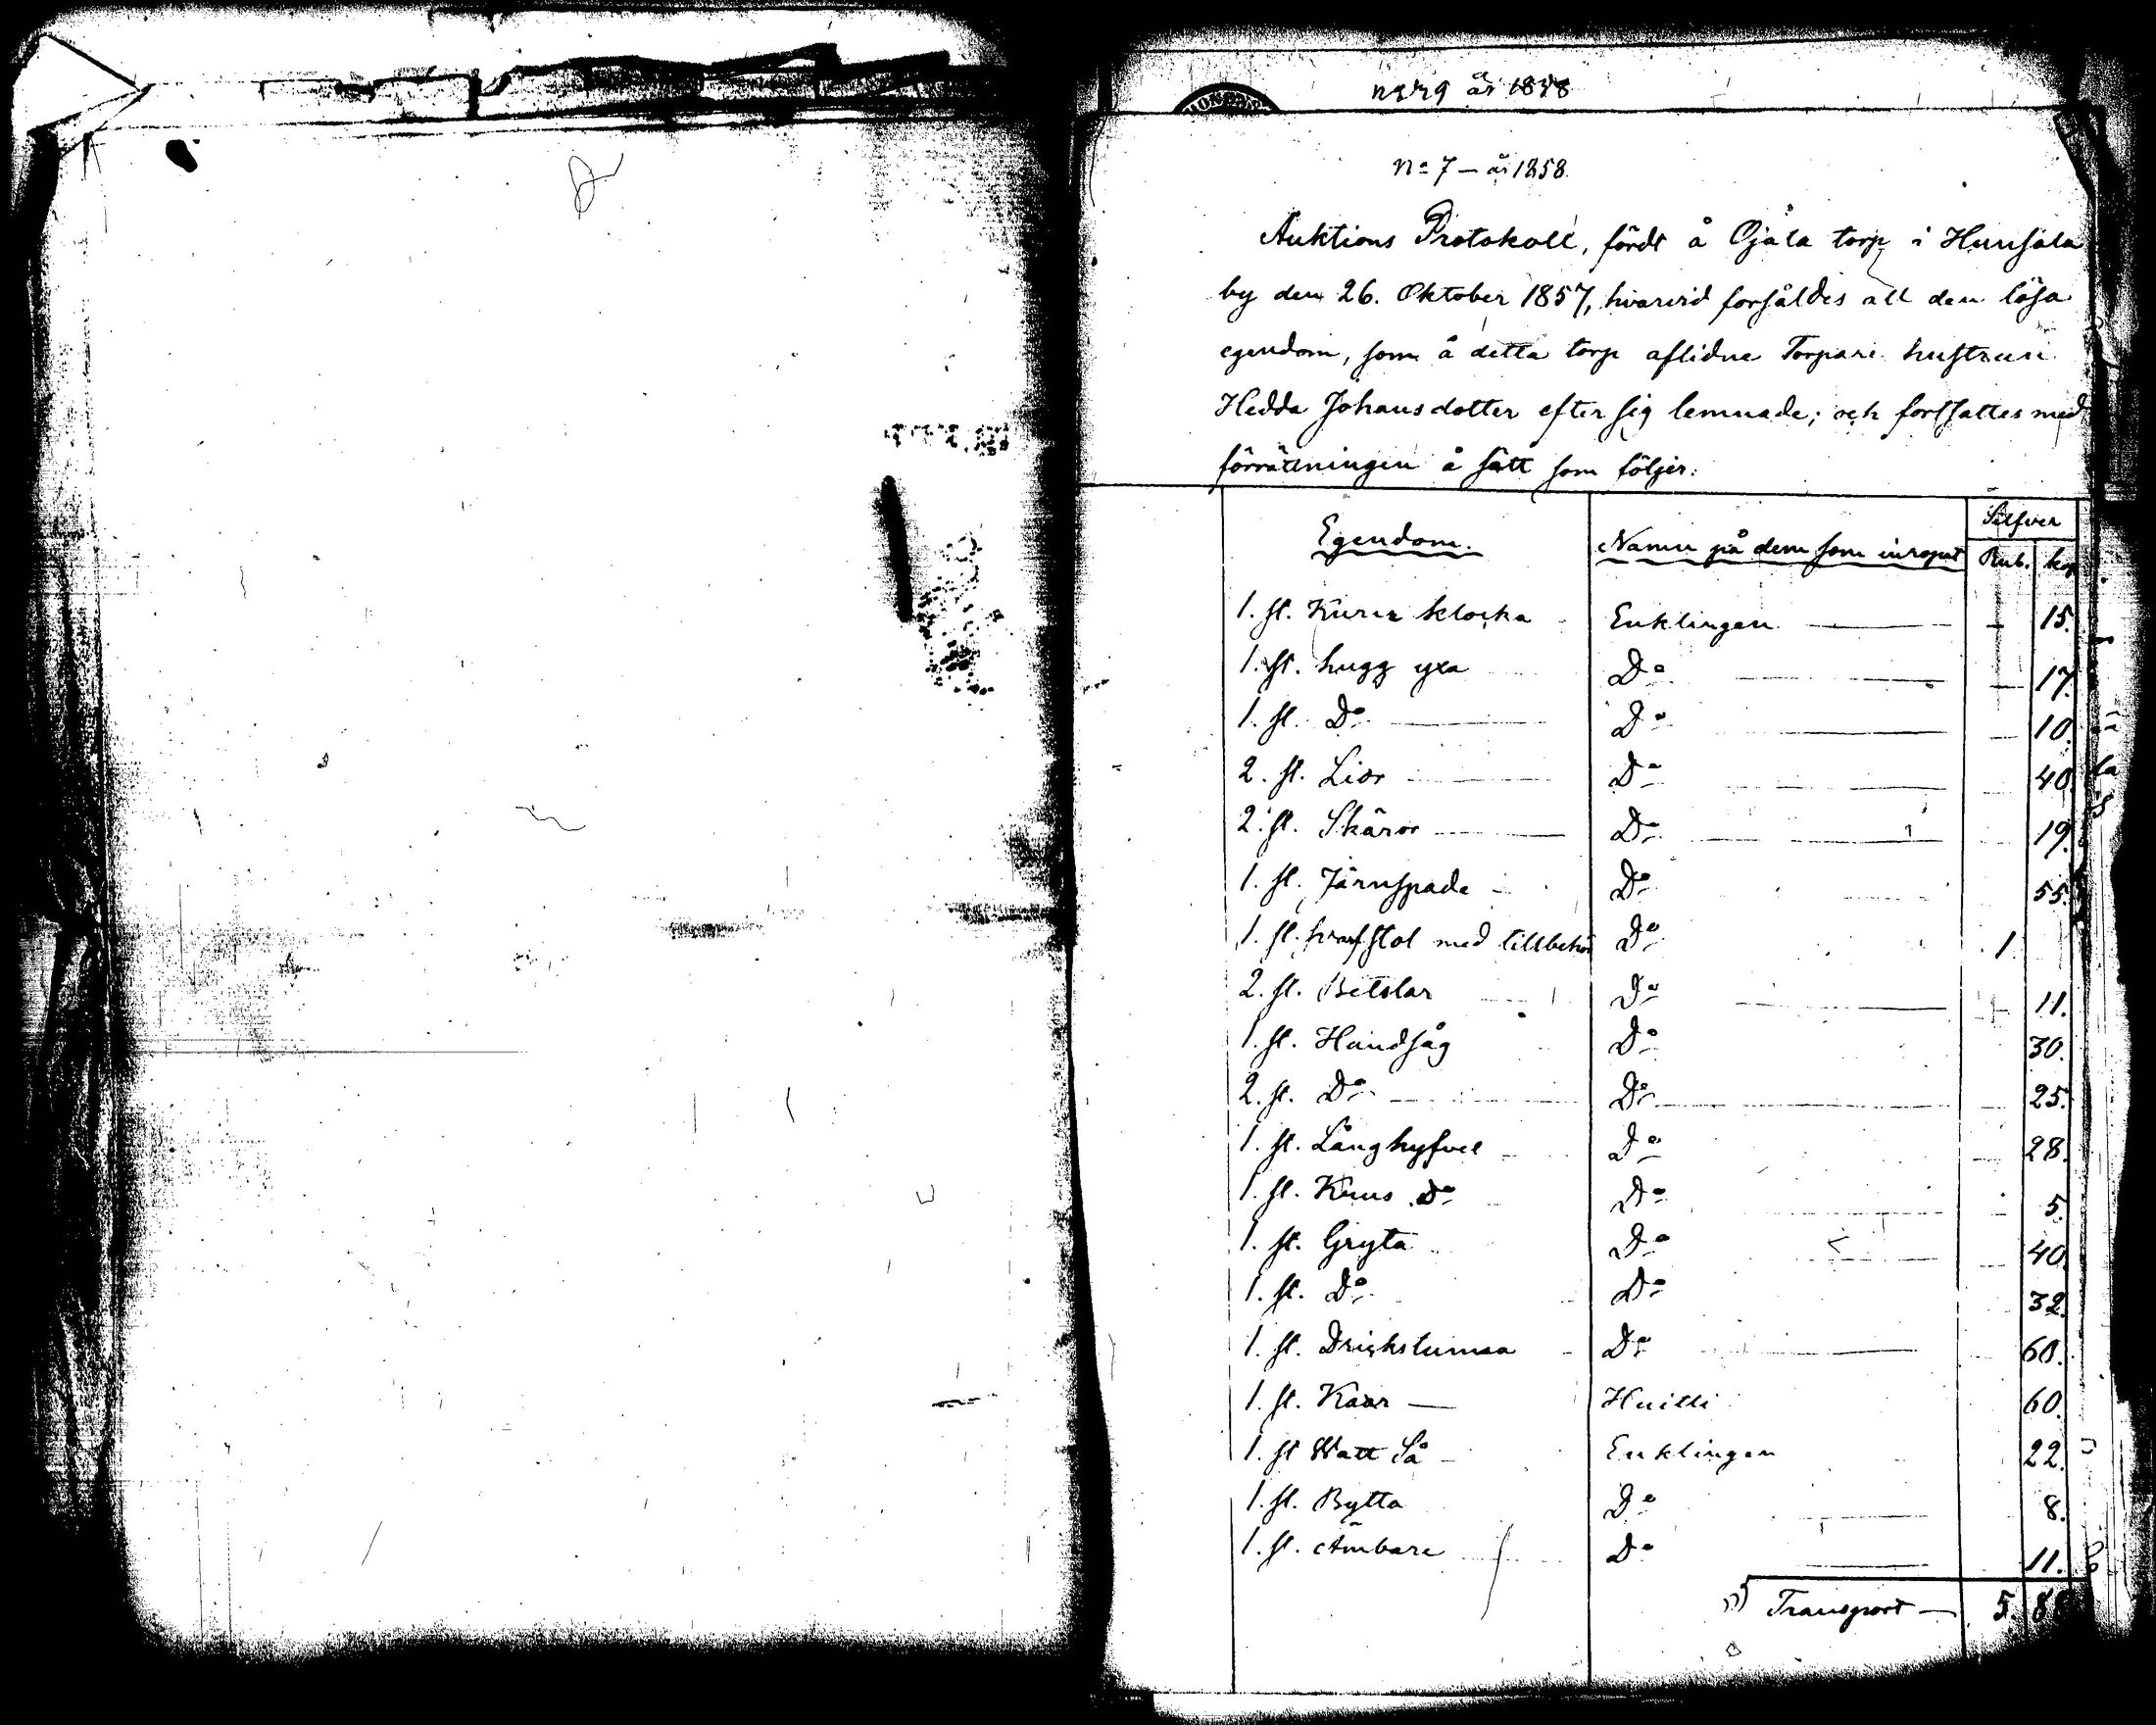 år 1858
No 7 – år 1858
Auktions Protokoll, fördt å Ojala torp i Hunsala
by den 26. Oktober 1857, hvarvid forsåldes all den lösa
egendom, som å detta torp aflidne Torpare hustrun
Hedda Johansdotter efter sig lemnade; och fortsattes med
förrättningen å sätt som följer:
Silfver
Egendom. Namn på dem som inropat Rub. kop
1. st. klocka Enklingen — 15.
1. st. hugg yxa Do — 17.
1. st. Do Do — 10.
2. st. Lior Do 40.
2. st. Skäror Do 19.
1. st. Järnspade Do 55.
1. st. stol med tillbehör Do 1.
2. st. Betslar Do 11.
1. st. Handsåg Do 30.
2. st. Do Do 25.
1. st. Långhyfvel Do 28.
1. st. Do Do 5.
1. st. Gryta Do 40.
1. st. Do Do 32.
1. st. Do 60.
1. st. Kaar — Huitti 60.
1. st Watt Så Enklingen 22.
1. st. Bytta Do 8.
1. st. Ämbare Do 11.
Transport — 5. 88